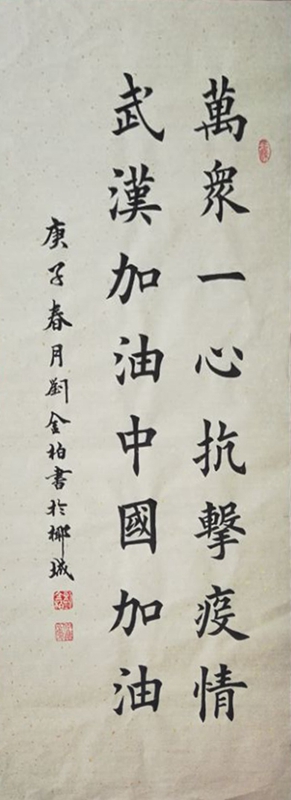 萬眾一心抗擊疫情
武漢加油中國加油
庚子春月劉金柏書於椰城